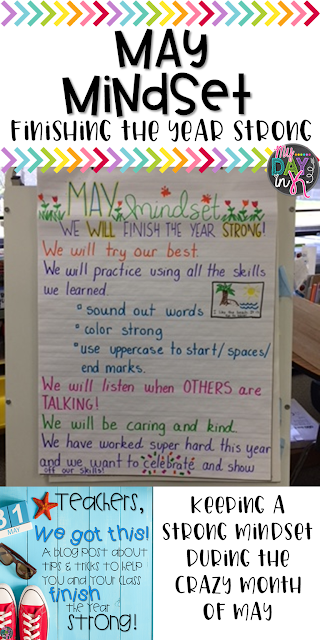 MAY
MINDSET
FINISHING THE YEAR STRONG
My
DAY
in K
MAY mindset
WE WILL FINISH THE YEAR STRONG!
We will try our best.
We will practice using all the skills
we learned.
sound out words
color strong
use uppercase to start/ spaces/
end marks.
We will listen when OTHERS are
TALKING!
We will be caring and kind.
We have worked super hard this year
and we want to celebrate and show
off our skills!
31
MAY
Teachers,
We got this!
A blog post about
tips & tricks to help
you and your class
finish
the year
strong!
KEEPING A
STRONG MINDSET
DURING THE
CRAZY MONTH
OF MAY